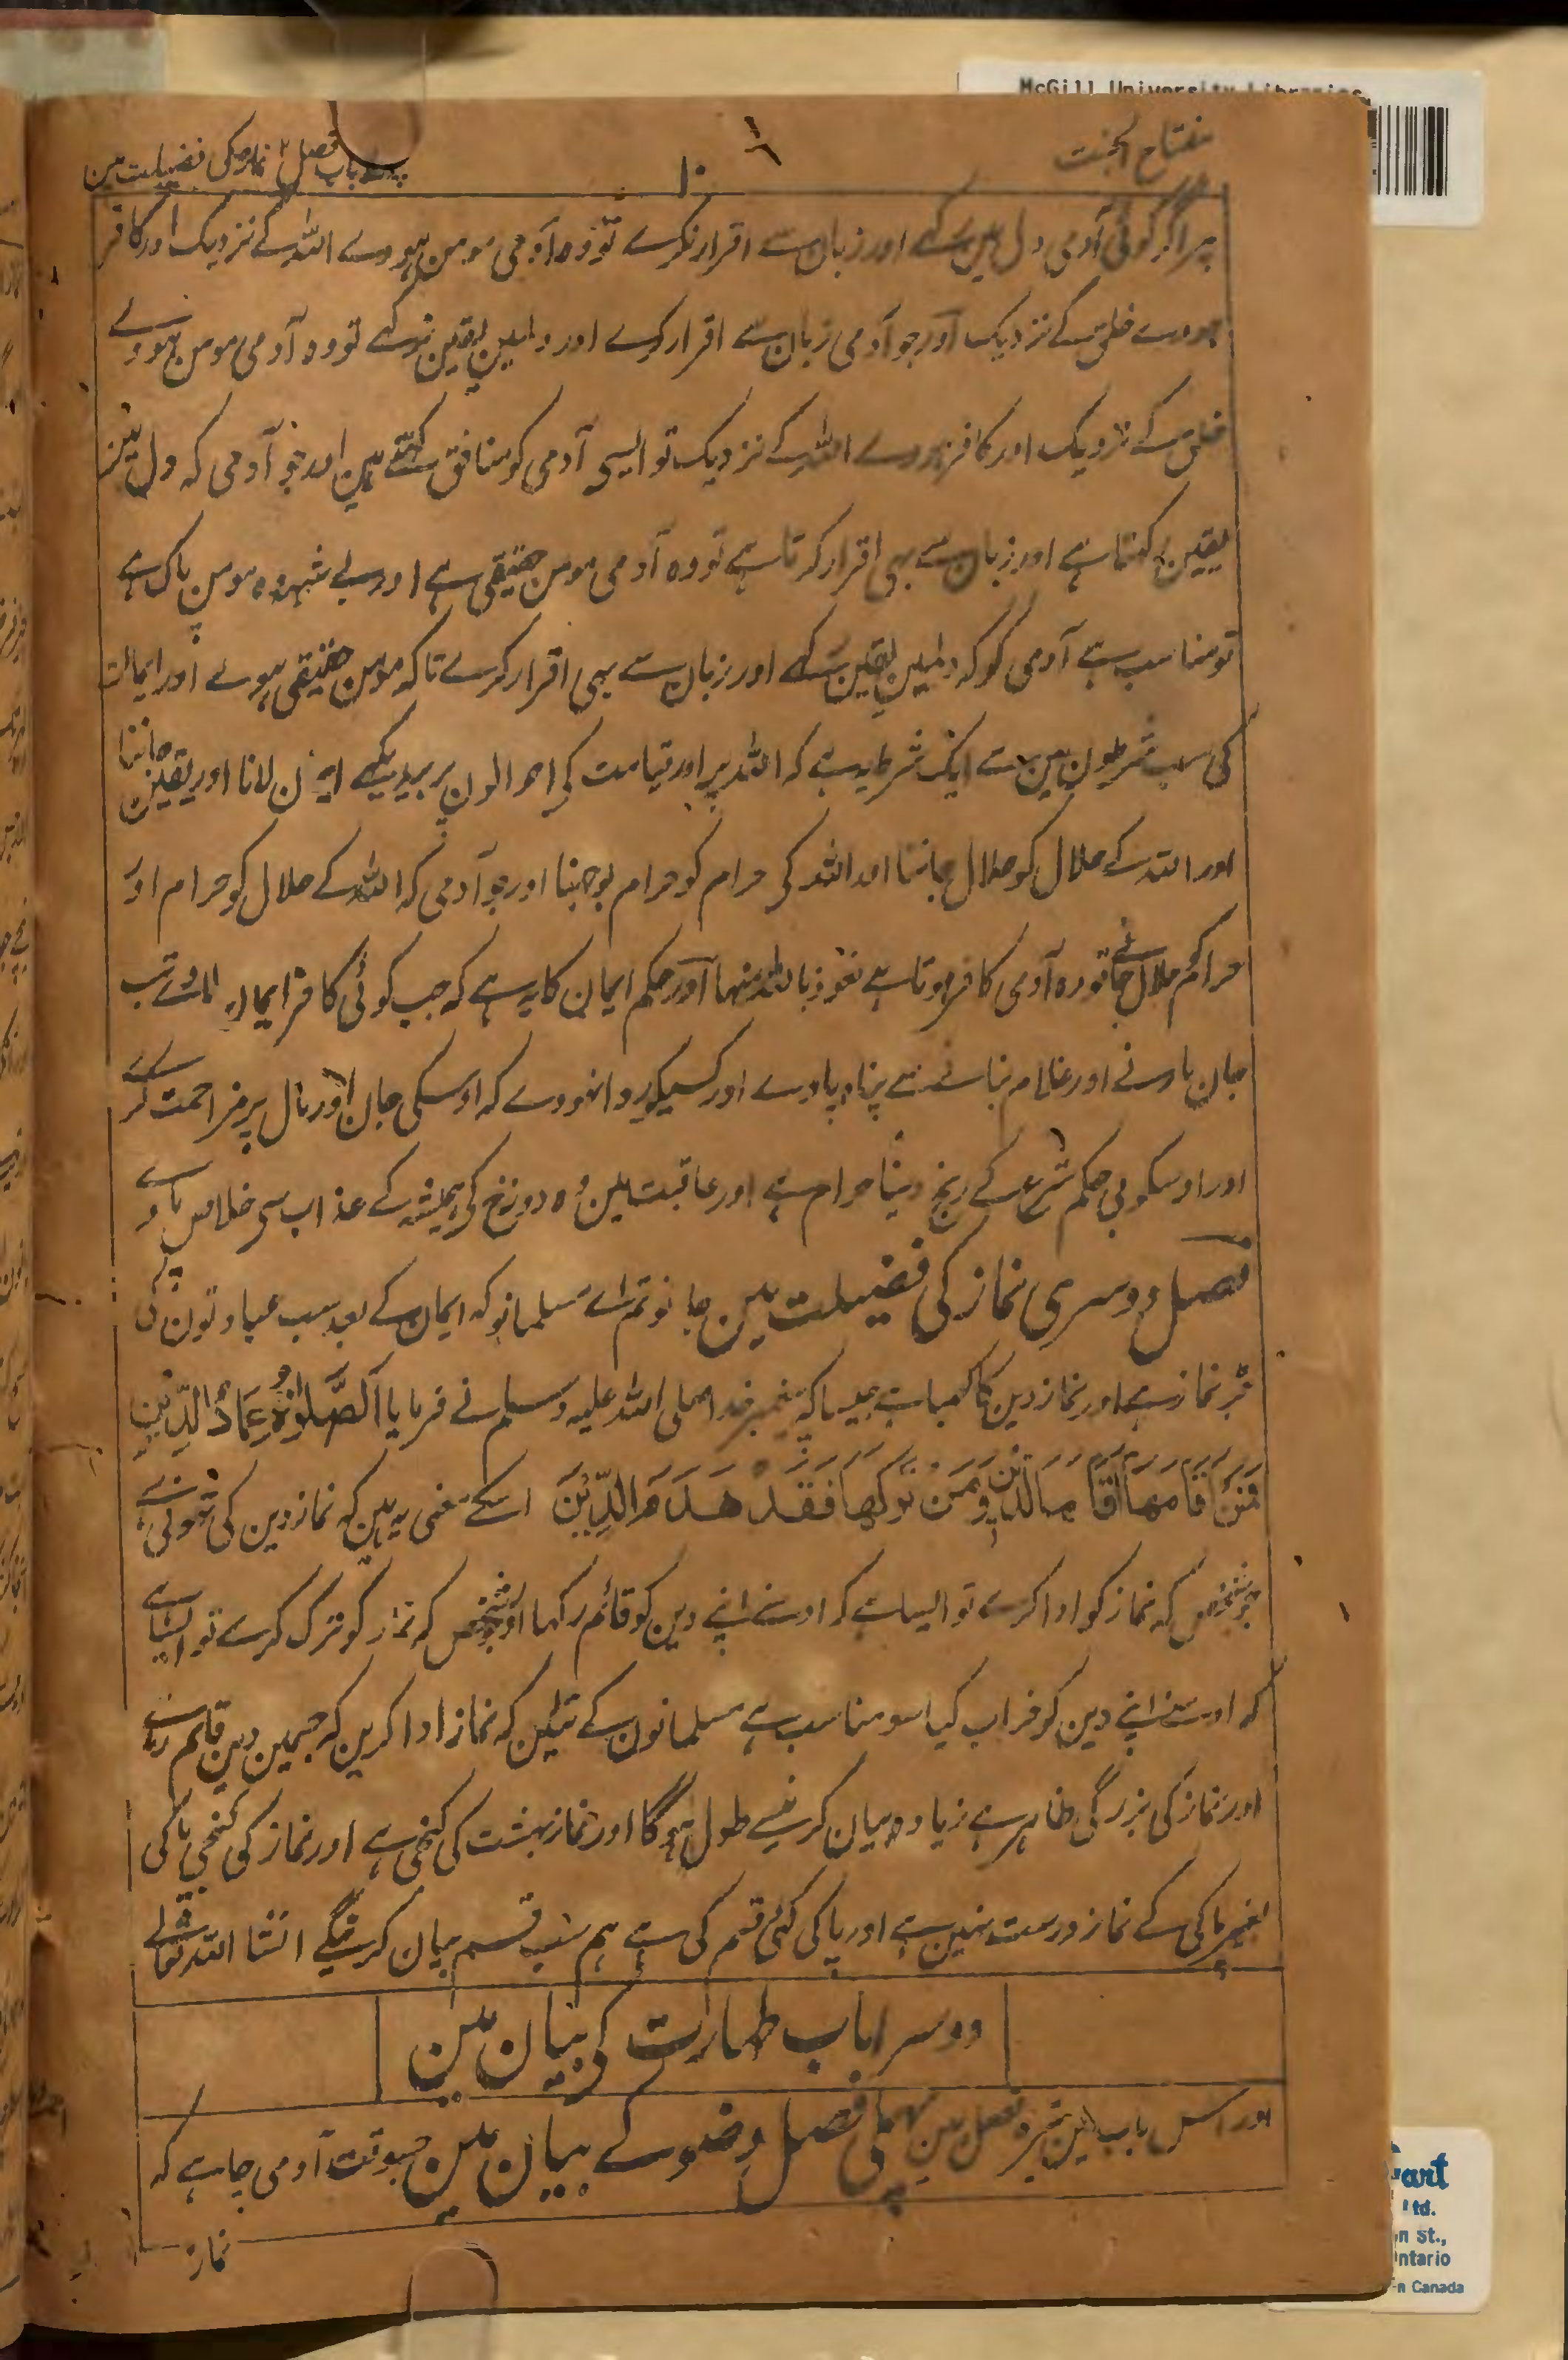 McGill University Libraries
مفتاح الجنت
۱۰
پہلے باب فصل ۲ نماز کی فضیلت مین
پر اگر کوئی آدمی دل مین رکھے اور زبان سے اقرار نکرے تو وہ آدمی مومن ہووے اللہ کے نزدیک اور کافر
ہووے خلق کے نزدیک اور جو آدمی زبان سے اقرار کرے اور دلمین یقین نرکھے تو وہ آدمی مومن ہووے
خلق کے نزدیک اور کافر ہووے اللہ کے نزدیک تو ایسی آدمی کو منافق کہتے ہین اور جو آدمی کہ دل مین
یقین رکھتا ہے اور زبان سے بہی اقرار کرتا ہے تو وہ آدمی مومن حقیقی ہے اور بے شبہہ وہ مومن پاک ہے
تو مناسب ہے آدمی کو کہ دلمین یقین رکھے اور زبان سے بہی اقرار کرے تاکہ مومن حقیقی ہوئے اور ایمان
کی سب شرطون مین سے ایک شرط یہ ہے کہ اللہ پر اور قیامت کی احوالون پر بیدیکھے ایمان لانا اور یقین جاننا
اور اللہ کے حلال کو حلال جاننا اور اللہ کی حرام کو حرام بوجہنا اور جو آدمی کہ اللہ کے حلال کو حرام اور
حرام کو حلال جانے تو وہ آدمی کافر ہوتا ہے نعوذ باللہ منہا اور حکم ایمان کا یہ ہے کہ جب کوئی کافر ایمان لاوے تب
جان مارنے اور غلام بنانے سے پناہ پاوے اور کسیکو روا نہووے کہ اوسکی جان اور مال پر مزاحمت کرے
اور اوسکو بی حکم شرع کے رنج دینا حرام ہے اور عاقبت مین وہ دوزخ کی ہمیشہ کے عذاب سی خلاص پاوے
فصل دوسری نماز کی فضیلت مین جانو تم اے مسلمانو کہ ایمان کے بعد سب عبادتون کی
جڑ نماز ہے اور نماز دین کا کھمبا ہے جیسا کہ پیغمبر خدا صلی اللہ علیہ وسلم نے فرمایا اَلصَّلٰوۃُ عِمَادُ الدِّیْنِ
فَمَنْ اَقَامَہَا اَقَامَ الدِّیْنَ وَمَنْ تَرَکَہَا فَقَدْ ہَدَمَ الدِّیْنَ اسکے معنی یہ ہین کہ نماز دین کی تھونی ہے
جو شخص کہ نماز کو ادا کرے تو ایسا ہے کہ اوسنے اپنے دین کو قائم رکہا اور جو شخص کہ نماز کو ترک کرے تو ایسا ہے
کہ اوسنے اپنے دین کو خراب کیا سو مناسب ہے مسلمانون کے تئین کہ نماز ادا کرین کہ جسمین دین قایم رہے
اور نماز کی بزرگی ظاہر ہے زیادہ بیان کرنیسے طول ہوگا اور نماز بہشت کی کنجی ہے اور نماز کی کنجی پاکی
بغیر پاکی کے نماز درست نہین ہے اور پاکی کئی قسم کی ہے ہم سب قسم بیان کرینگے انشا اللہ تعالے
دوسرا باب طہارت کی بیان مین
اور اس باب مین تیرہ فصل ہین پہلی فصل وضو کے بیان مین جسوقت آدمی چاہے کہ
نماز
art
Ltd.
n St.,
ntario
n Canada